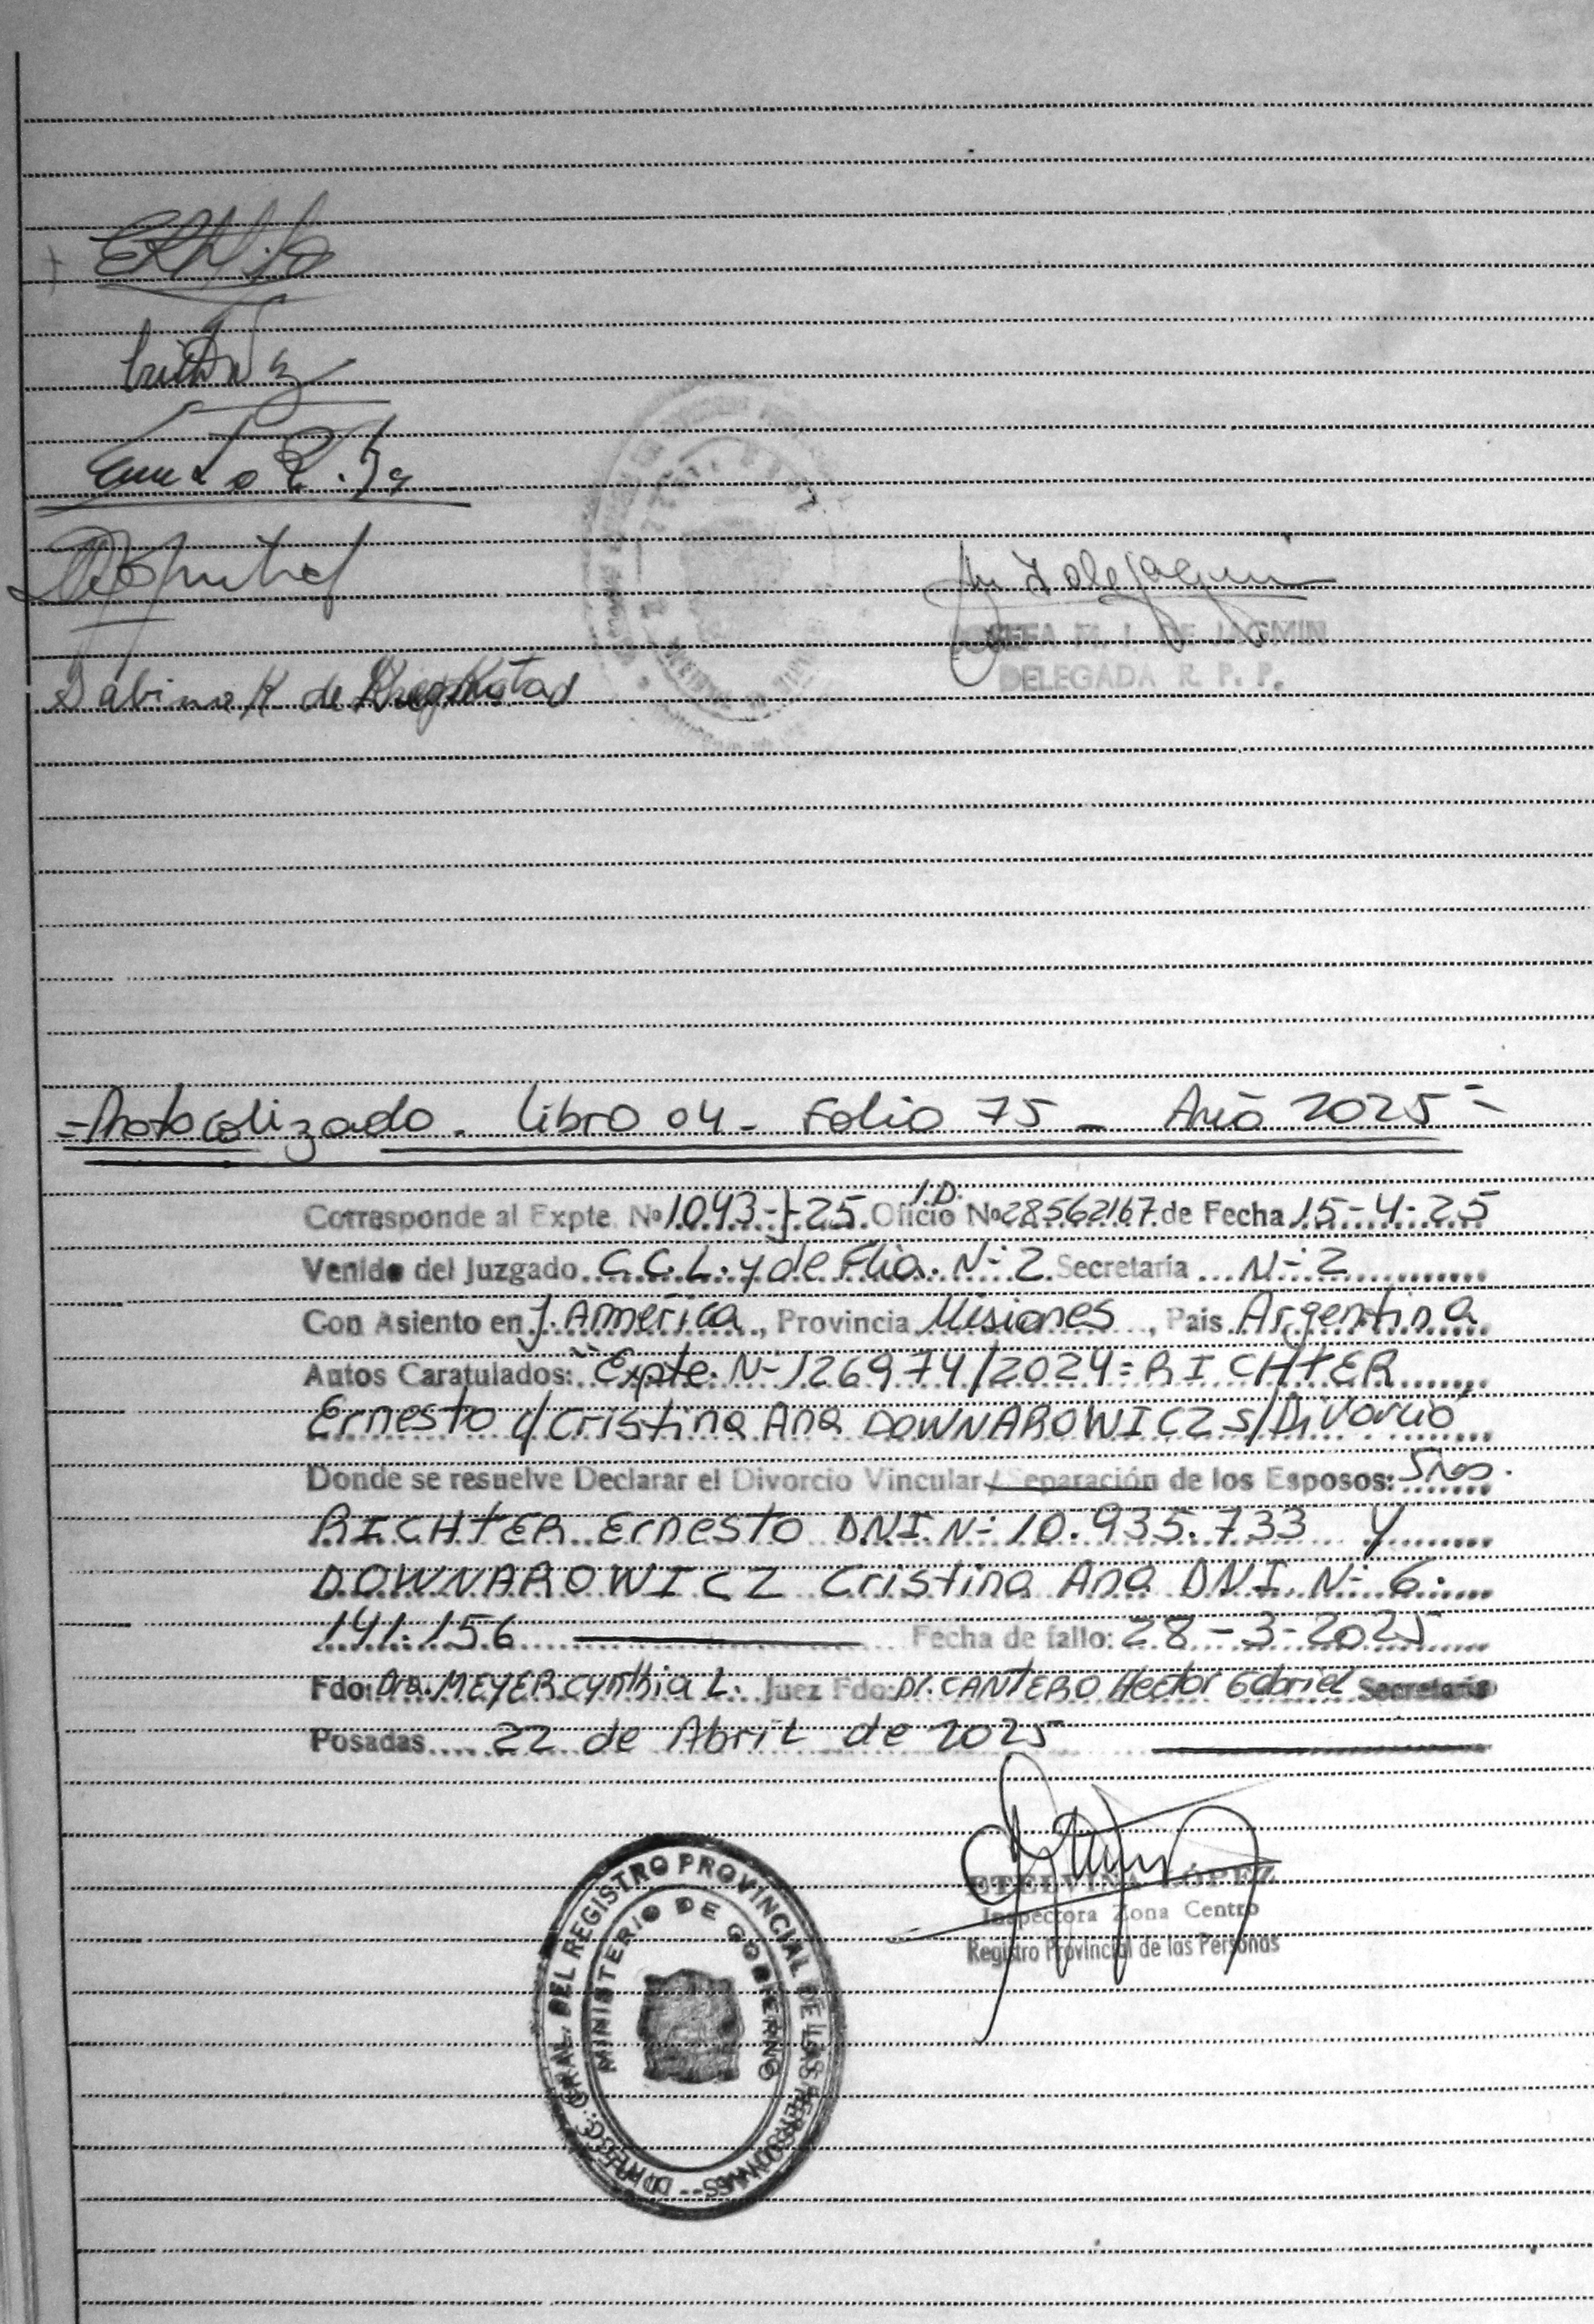 Sabina K. de
DELEGADA R. P. P.
=Protocolizado. Libro 04- Folio 75 - Año 2025=
I.D.
Corresponde al Expte. Nº 1043-J-25 Oficio Nº 28562167 de Fecha 15-4-25
Venido del Juzgado C.C.L. y de Flia. N-2 Secretaria N-2
Con Asiento en J. América, Provincia Misiones, Pais Argentina
Autos Caratulados: "Expte. N-126974/2024= RICHTER
Ernesto c/ Cristina Ana DOWNAROWICZ s/Divorcio"
Donde se resuelve Declarar el Divorcio Vincular / Separación de los Esposos: Sres.
RICHTER Ernesto DNI N- 10.935.733 y
DOWNAROWICZ Cristina Ana DNI. N- 6.
141.156 Fecha de fallo: 28-3-2025
Fdo: Dra. MEYER Cynthia L. Juez Fdo: Dr. CANTERO Hector Gabriel Secretario
Posadas 22 de Abril de 2025
ETELVINA LÓPEZ
Inspectora Zona Centro
Registro Provincial de las Personas
DIRECC. GRAL. DEL REGISTRO PROVINCIAL DE LAS PERSONAS
MINISTERIO DE GOBIERNO